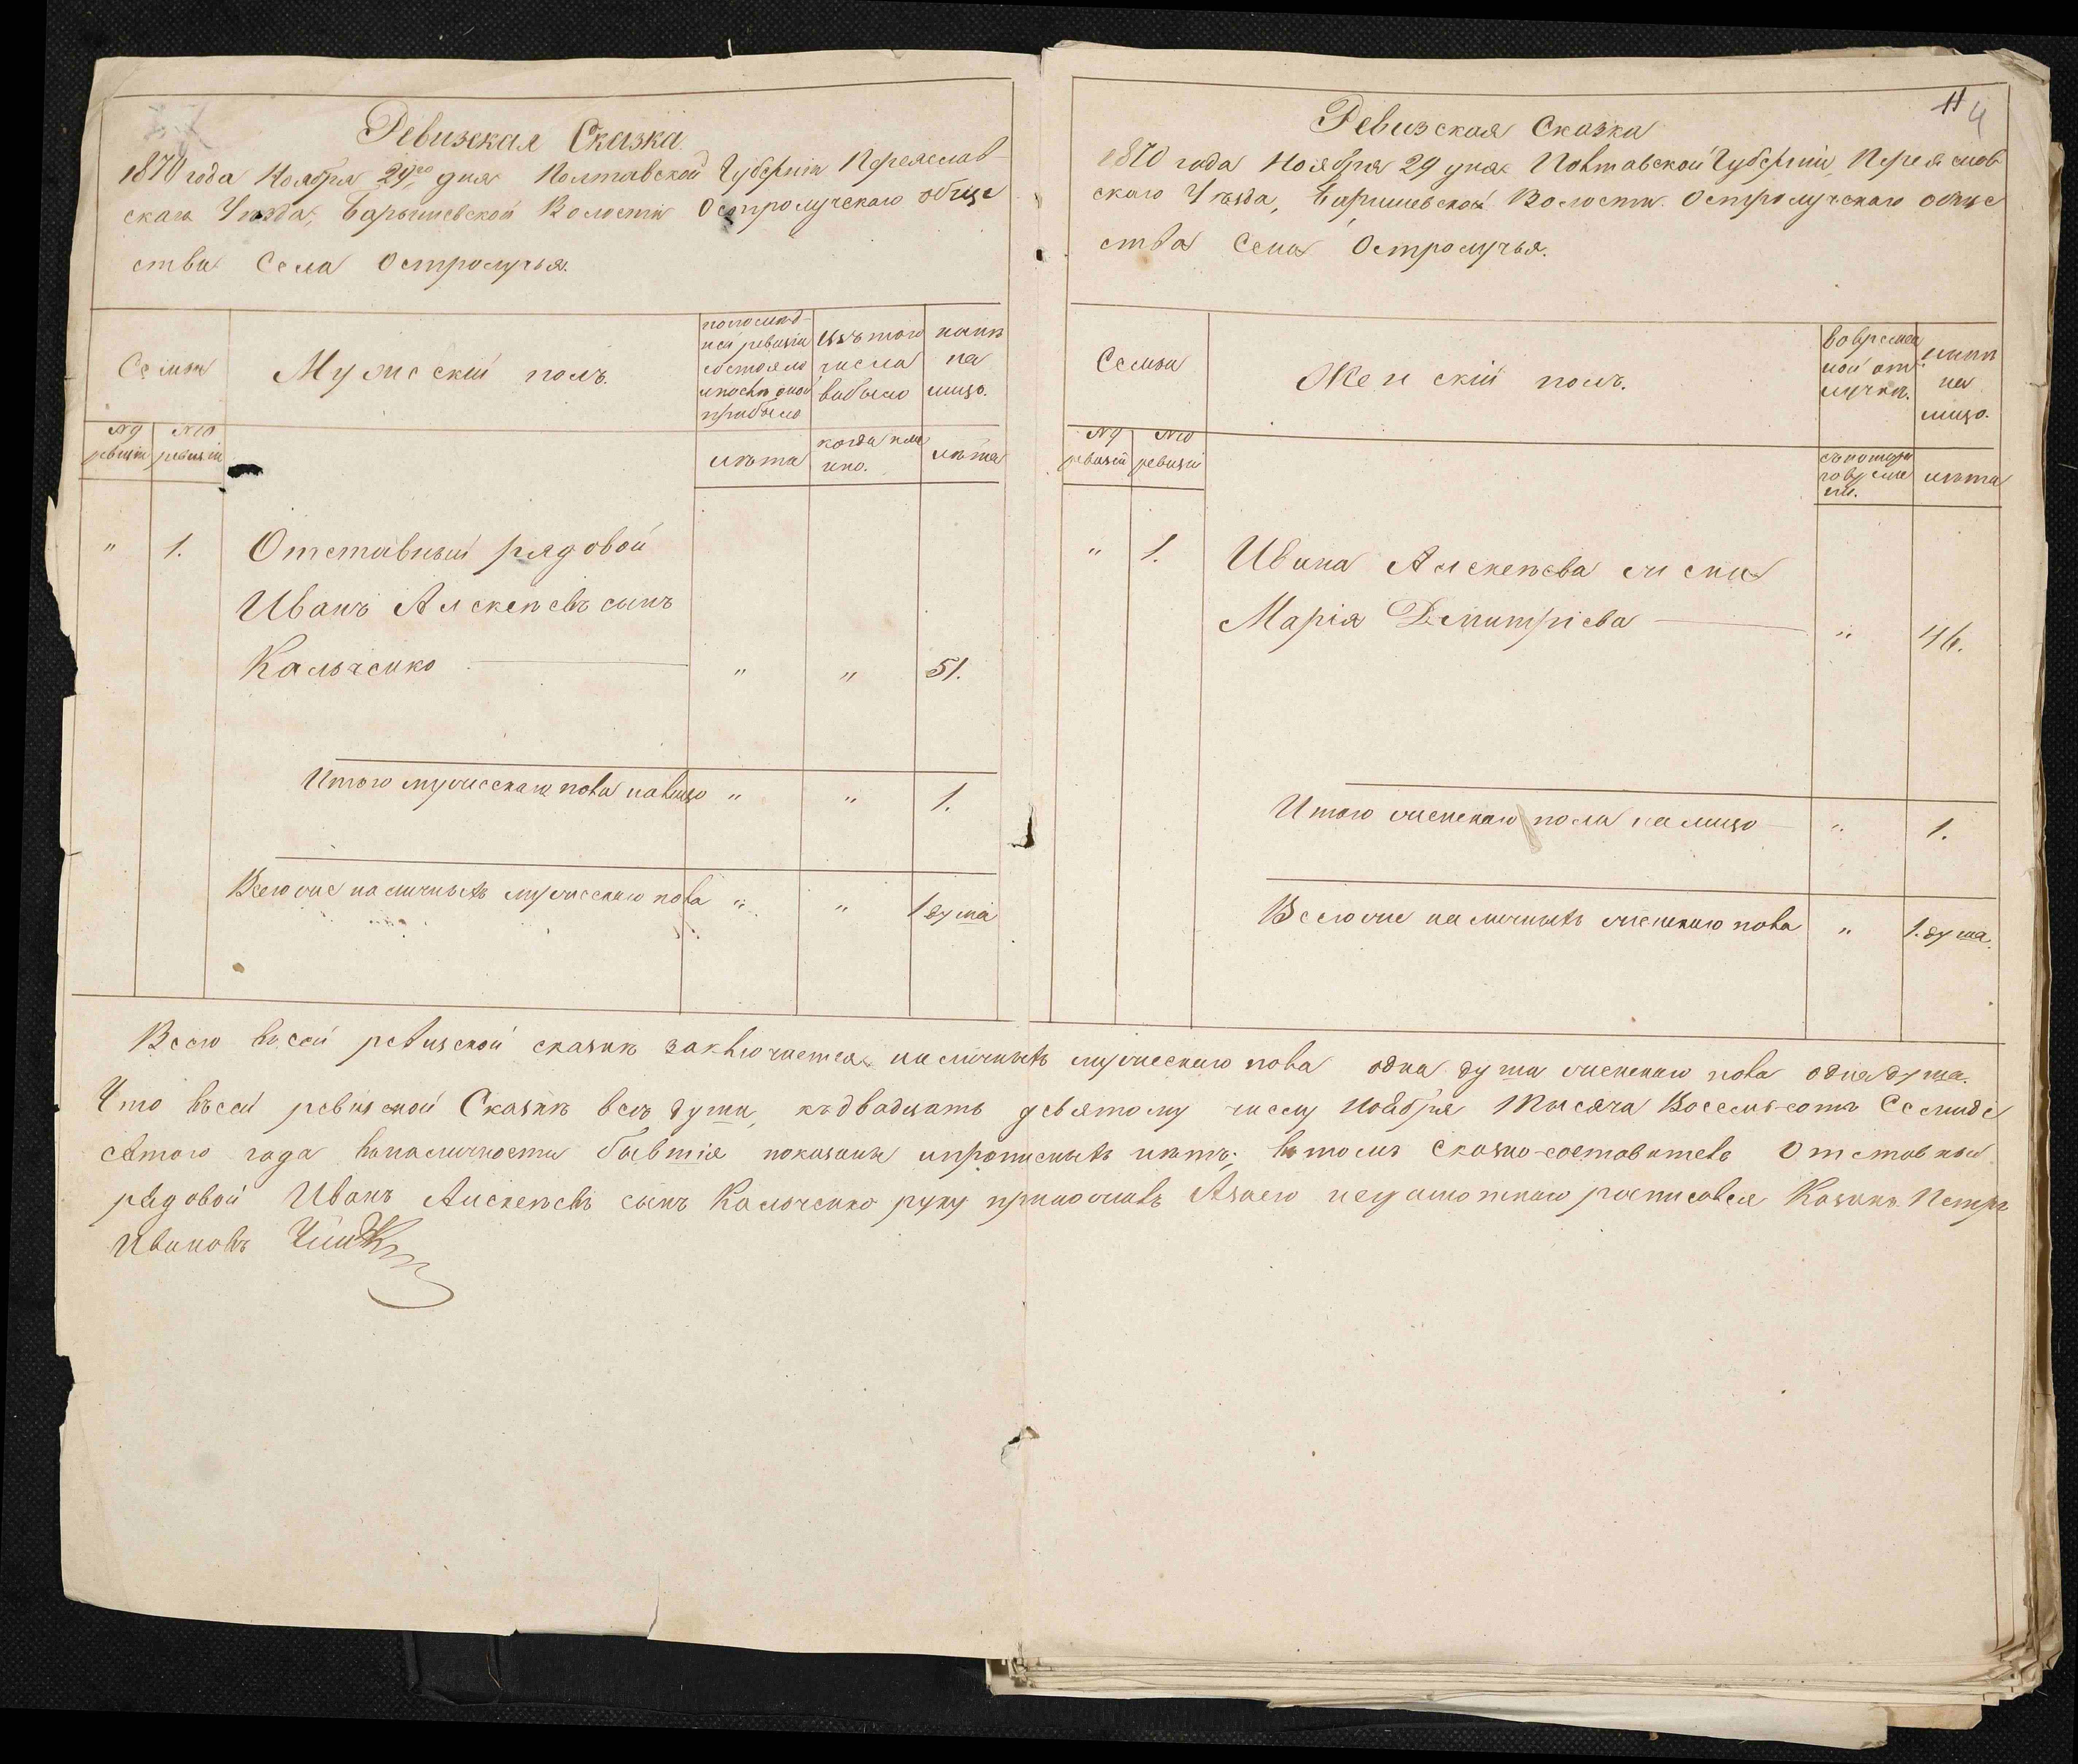 Ревизская Сказка
1870 года Ноября 29го дня Полтавской Губерніи Переяслав-
скаго Уезда, Барышевской Волости Остролучскаго обще
ства Села Остролучья.
Семьи
Мужескій полъ.
по послед-
ней ревизіи
состояло
и после оной
прибыло
Изъ того
числа
выбыло
ныне
на
лицо.
№ 9
ревизіи
№ 10
ревизіи
лета
когда именно.
лета
" 1. Отставный рядовой
Иванъ Алексеевъ сынъ
Кальченко " " 51.
Итого мужескаго пола налицо " " 1.
Всего же наличныхъ мужескаго пола " " 1 душа
11 4
Ревизская Сказка
1870 года Ноября 29 дня Полтавской Губерніи, Переяслов
скаго Уезда, Баришевской Волости Остролучскаго обще
ства Села Остролучья.
Семьи
Женскій полъ.
во времен
ной от
лучке.
ныне
на
лицо.
№ 9
ревизій
№ 10
ревизіи
съ котора
го време
ни.
лета
" 1. Ивана Алексеева жена
Марія Дмитріева " 46.
Итого женскаго пола налицо " 1.
Всего же наличныхъ женскаго пола " 1. душа.
Всего въ сей ревизской сказке заключается наличныхъ мужескаго пола одна душа женскаго пола одна душа.
Что въ сей ревизской Сказке все души, къ двадцать девятому числу Ноября Тысяча Восемь-сотъ Семиде
сятого года въ наличности бывшія показаны и прописныхъ нетъ; въ томъ сказко-составитель Отставный
рядовой Иванъ Алексеевъ сынъ Кальченко руку приложилъ А за его неграмотнаго росписался Казакъ Петръ
Ивановъ